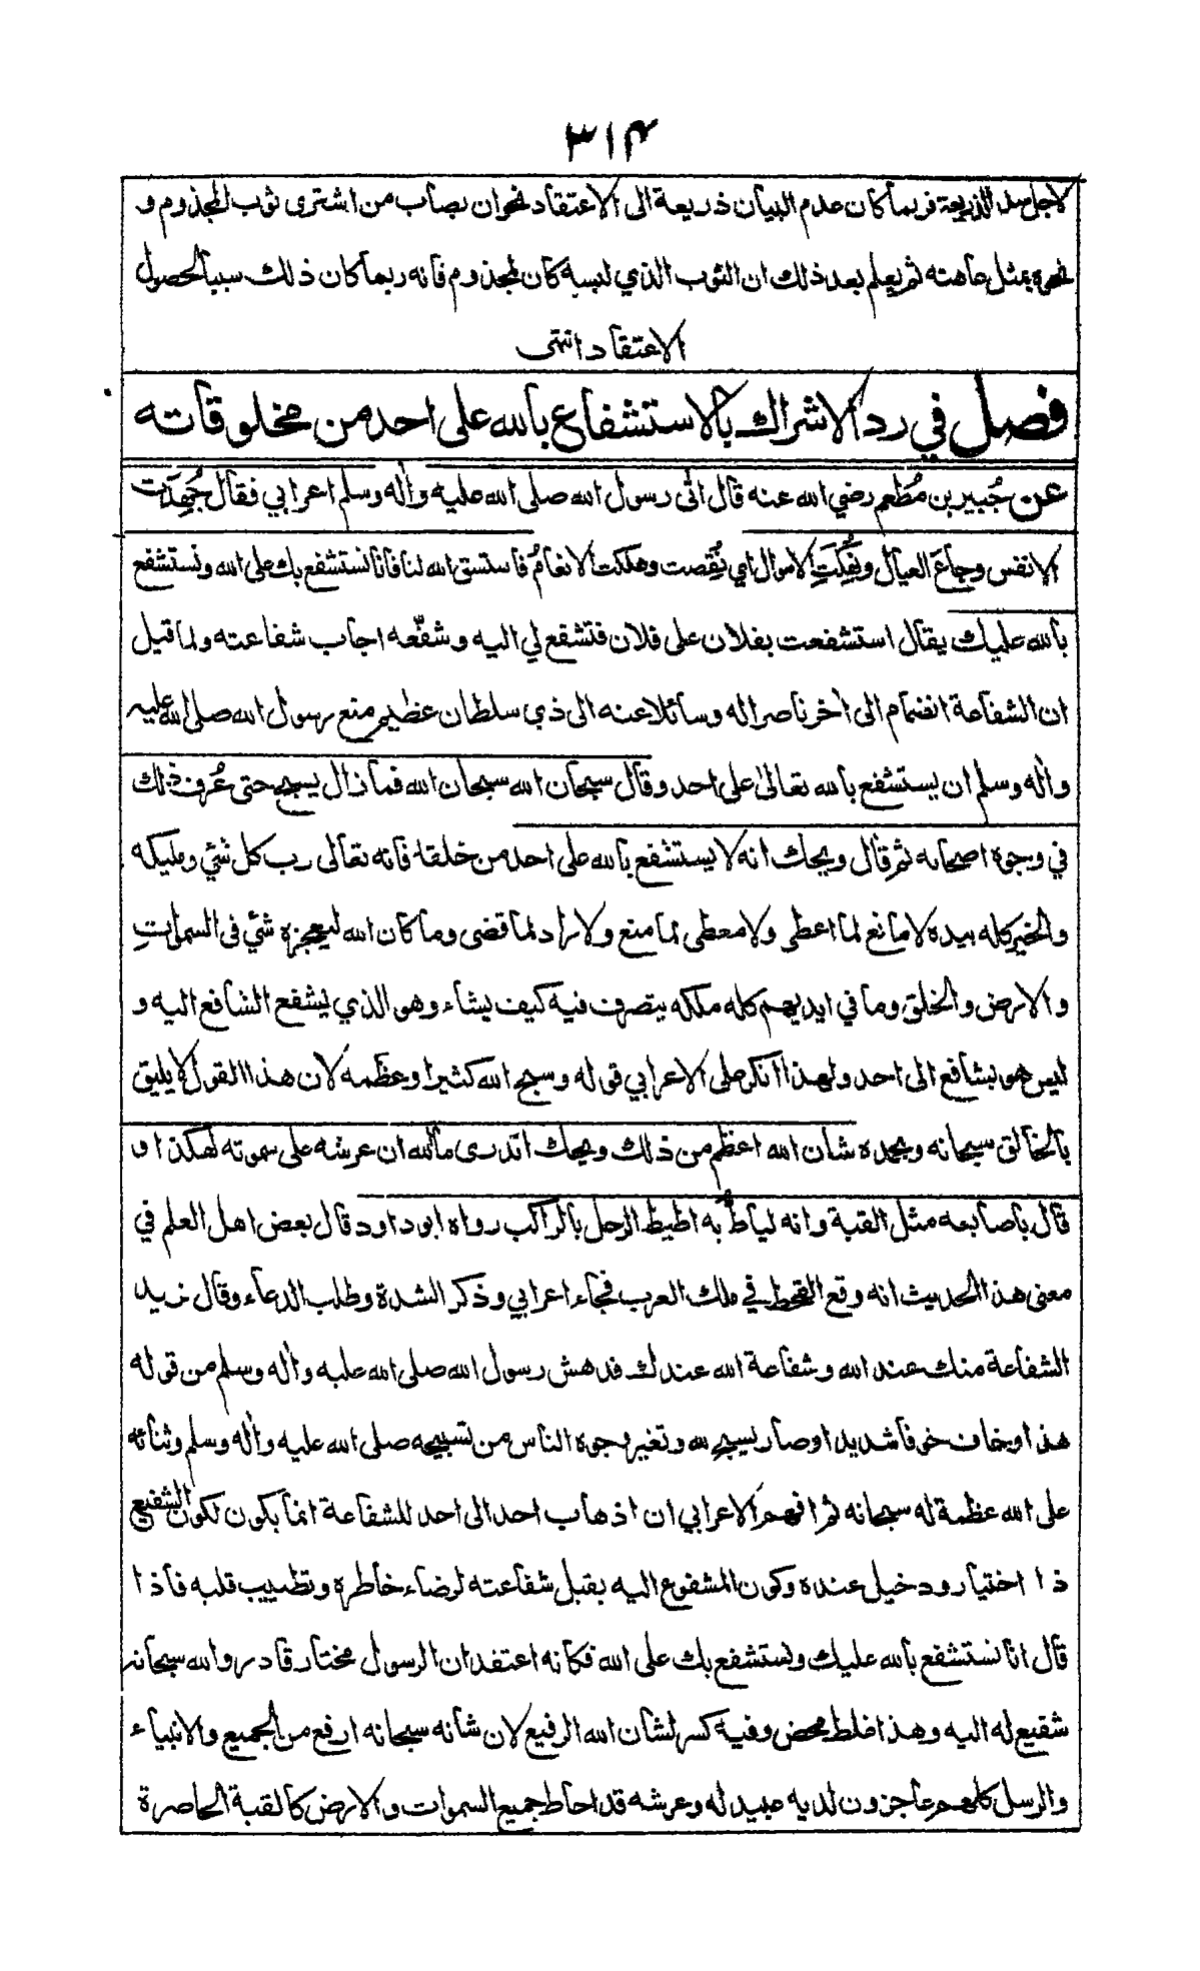 ٣١٤
لاجل سد الذريعة فربما كان عدم البيان ذريعة الى الاعتقاد نحو ان يصاب من اشترى ثوب المجذوم و
نحوه بمثل عاهته ثم يعلم بعد ذلك ان الثوب الذي لبسه كان لمجذوم فانه ربما كان ذلك سببا لحصول
الاعتقاد انتهى
فصل في رد الاشراك بالاستشفاع بالله على احد من مخلوقاته
عن جُبير بن مُطعم رضي الله عنه قال اتى رسول الله صلى الله عليه واٰله وسلم اعرابي فقال جُهِدَت
الانفس وجاعَ العيال ونُهِكَتِ الاموال اي نُقِصت وهلكت الانعامُ فاستسق الله لنا فانا نستشفع بك على الله ونستشفع
بالله عليك يقال استشفعت بفلان على فلان فتشفع لي اليه وشفّعه اجاب شفاعته ولما قيل
ان الشفاعة انضمام الى اٰخر ناصرا له وسائلا عنه الى ذي سلطان عظيم منع رسول الله صلى الله عليه
واٰله وسلم ان يستشفع بالله تعالىٰ على احد وقال سبحان الله سبحان الله فما زال يسبح حتى عُرف ذٰلك
في وجوه اصحابه ثم قال ويحك انه لا يستشفع بالله على احد من خلقه فانه تعالى رب كل شئ ومليكه
والخير كله بيده لا مانع لما اعطى ولا معطي لما منع ولا راد لما قضى وما كان الله ليعجزه شئ في السمٰواتِ
والارض والخلق وما في ايديهم كله ملكه يتصرف فيه كيف يشاء وهو الذي يشفع الشافع اليه و
ليس هو بشافع الى احد ولهذا انكر على الاعرابي قوله وسبح الله كثيرا وعظمه لان هذا القول لا يليق
بالخالق سبحانه وبحمده شان الله اعظم من ذلك ويحك اتدري ما الله ان عرشه على سموته لهكذا و
قال باصابعه مثل القبة وانه لياطُّ به اطيط الرحل بالراكب رواه ابو داود قال بعض اهل العلم في
معنى هذا الحديث انه وقع القحط في ملك العرب فجاء اعرابي وذكر الشدة وطلب الدعاء وقال نريد
الشفاعة منك عند الله وشفاعة الله عندك فدهش رسول الله صلى الله عليه واٰله وسلم من قوله
هذا وخاف خوفا شديدا وصار يسبح لله وتغير وجوه الناس من تسبيحه صلى الله عليه واٰله وسلم وثنائه
على الله عظمة له سبحانه ثم افهم الاعرابي ان اذهاب احد الى احد للشفاعة انما يكون لكون الشفيع
ذا اختيار ودخيل عنده وكون المشفوع اليه يقبل شفاعته لرضاء خاطره وتطييب قلبه فاذا
قال انا نستشفع بالله عليك ونستشفع بك على الله فكانه اعتقد ان الرسول مختار قادر والله سبحانه
شفيع له اليه وهذا غلط محض وفيه كسر لشان الله الرفيع لان شانه سبحانه ارفع من الجميع والانبياء
والرسل كلهم عاجزون لديه عبيد له وعرشه قد احاط جميع السموات والارض كالقبة الحاصرة